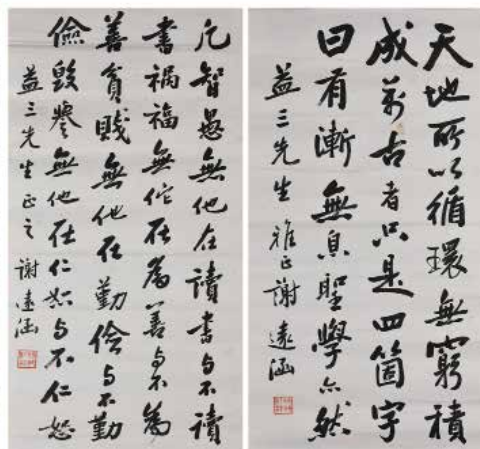 天地所以循環無窮積
成萬古者只是四箇字
曰有漸無息聖學亦然
益三先生雅正謝遠涵
凡智愚無他在讀書与不讀
書禍福無佗在為善与不為
善貧賤無他在勤儉与不勤
儉毀譽無他在仁恕与不仁恕
益三先生正之 謝遠涵